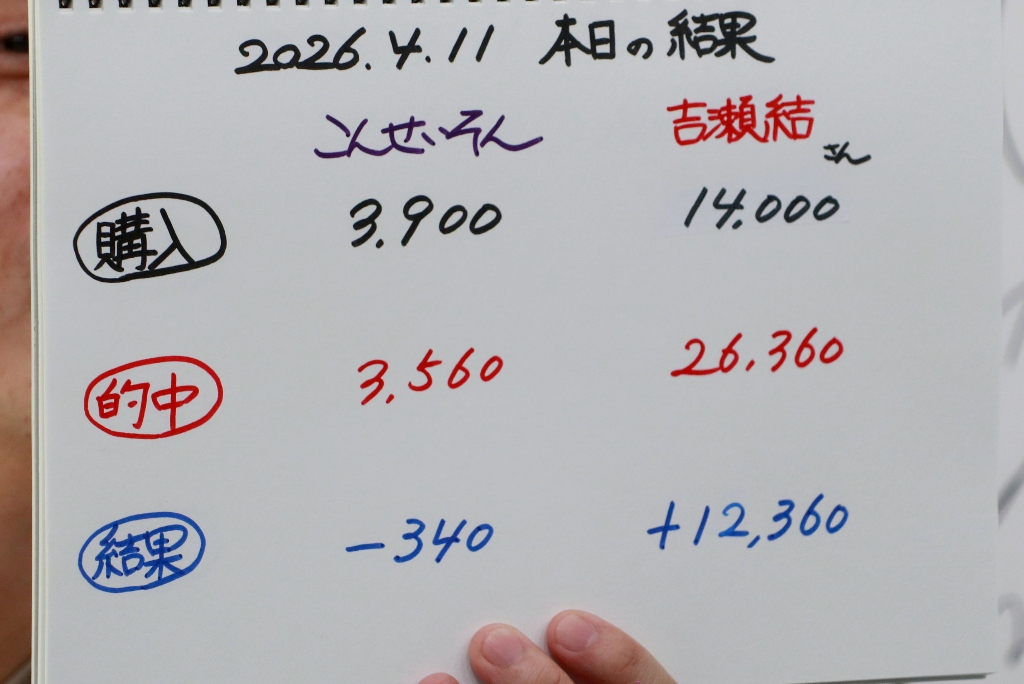 2026.4.11 本日の結果
こんせいそん 吉瀬結さん
購入 3.900 14.000
的中 3.560 26.360
結果 -340 +12,360